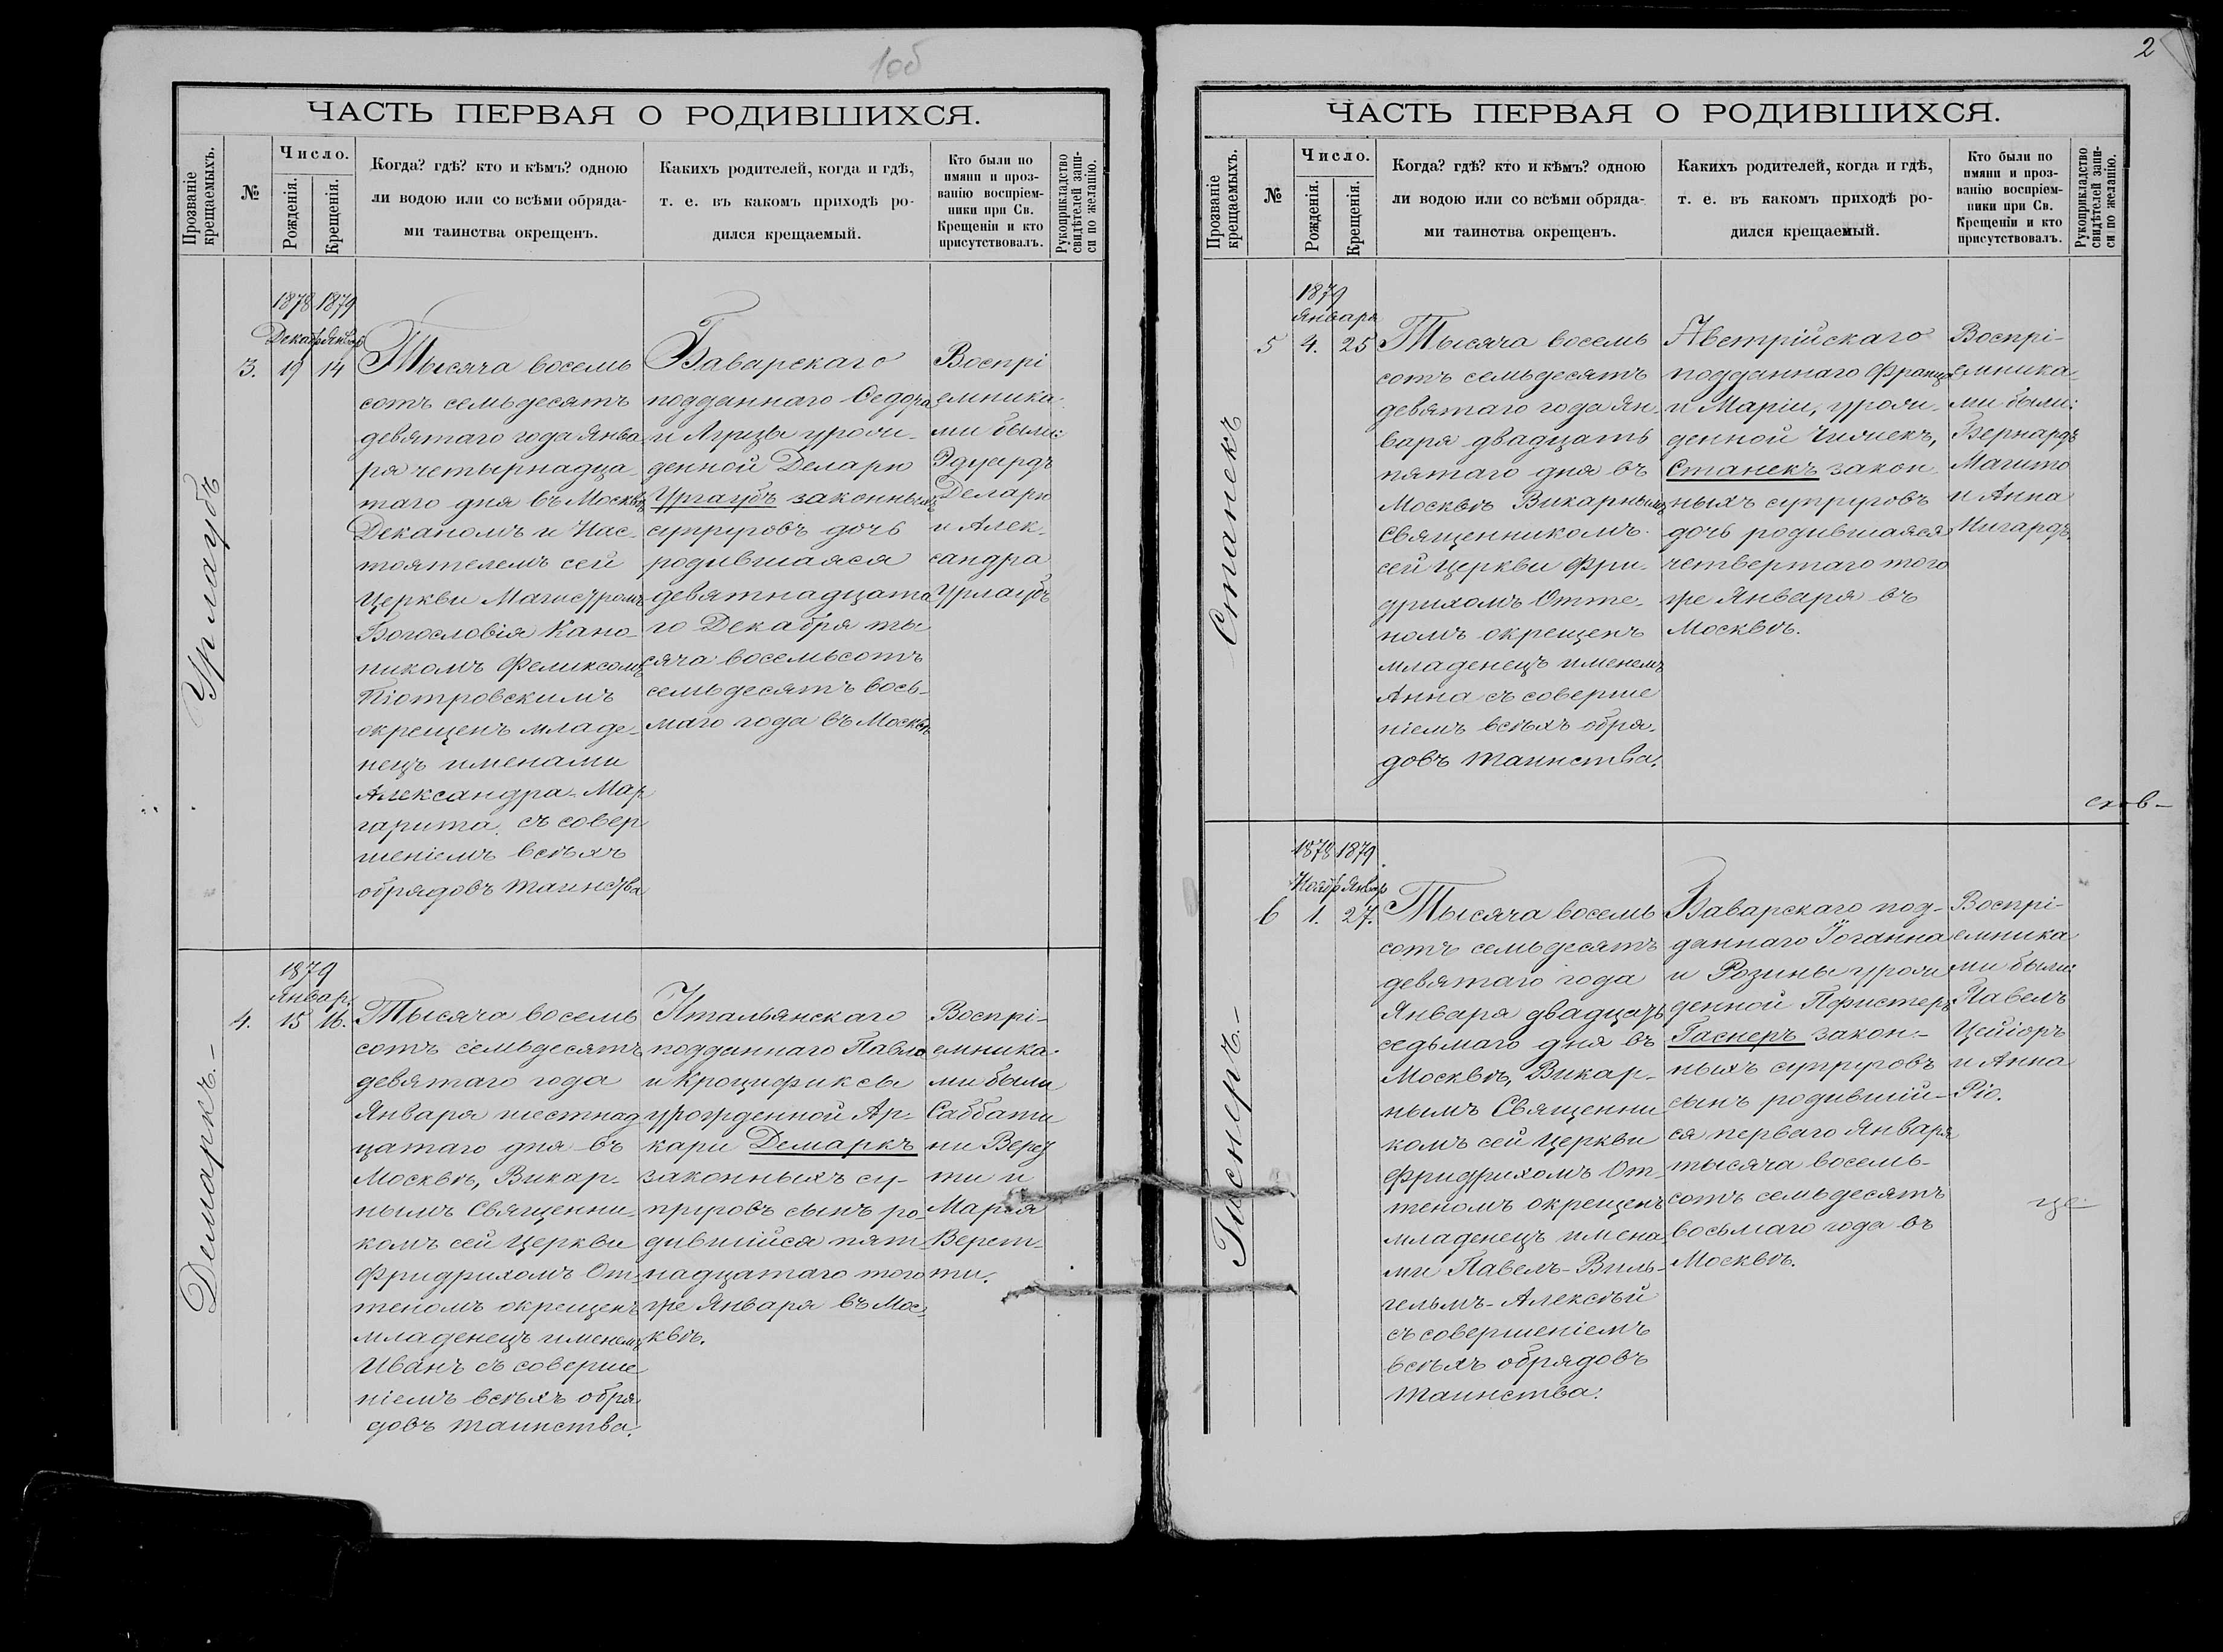 10б
ЧАСТЬ ПЕРВАЯ О РОДИВШИХСЯ.
Прозваніе
крещаемыхъ.
№
Число.
Рожденія.
Крещенія.
Когда? гдѣ? кто и кѣмъ? одною
ли водою или со всѣми обряда-
ми таинства окрещенъ.
Какихъ родителей, когда и гдѣ,
т. е. въ какомъ приходѣ ро-
дился крещаемый.
Кто были по
имяни и проз-
ванію воспріем-
ники при Св.
Крещеніи и кто
присутствовалъ.
Рукоприкладство
свидѣтелей запи-
си по желанію.
Урлаубъ
3.
1878 1879
Декабр Январ
19 14
Тысяча восемь
сотъ семьдесятъ
девятаго года Янва
ря четырнадца
таго дня въ Москвѣ
Деканомъ и Нас-
тоятелемъ сей
Церкви Магистромъ
Богословія Кано-
никомъ Феликсомъ
Піотровскимъ
окрещенъ младе-
нецъ именами
Александра-Мар
гарита съ совер
шеніемъ всѣхъ
обрядовъ таинства
Баварскаго
подданнаго Ѳедора
и Луизы урож-
денной Деларю
Урлаубъ законныхъ
супруговъ дочь
родившаяся
девятнадцата
го Декабря ты
сяча восемьсотъ
семьдесятъ вось-
маго года въ Москвѣ
Воспрі
емника-
ми были:
Эдуардъ
Деларю
и Алек-
сандра
Урлаубъ
Демаркъ.-
4.
1879
Январ.
15 16.
Тысяча восемь
сотъ семьдесятъ
девятаго года
Января шестнад
цатаго дня въ
Москвѣ, Викар-
нымъ Священни-
комъ сей Церкви
Фридрихомъ От-
теномъ окрещенъ
младенецъ именемъ
Иванъ съ соверше
ніемъ всѣхъ обря
довъ таинства.
Итальянскаго
подданнаго Павла
и Кроцификсы
урожденной Ар-
кари Демаркъ
законныхъ су-
пруговъ сынъ ро-
дившійся пят-
надцатаго того
же Января въ Мос-
квѣ.
Воспрі-
емника-
ми были
Саббати
ни Верет
ти и
Марія
Верет-
ти.
2
ЧАСТЬ ПЕРВАЯ О РОДИВШИХСЯ.
Прозваніе
крещаемыхъ.
№
Число.
Рожденія.
Крещенія.
Когда? гдѣ? кто и кѣмъ? одною
ли водою или со всѣми обряда-
ми таинства окрещенъ.
Какихъ родителей, когда и гдѣ,
т. е. въ какомъ приходѣ ро-
дился крещаемый.
Кто были по
имяни и проз-
ванію воспріем-
ники при Св.
Крещеніи и кто
присутствовалъ.
Рукоприкладство
свидѣтелей запи-
си по желанію.
Станекъ
5
1879
Января
4. 25
Тысяча восемь
сотъ семьдесятъ
девятаго года Ян-
варя двадцать
пятаго дня въ
Москвѣ Викарнымъ
Священникомъ
сей Церкви Фри-
дрихомъ Отте-
номъ окрещенъ
младенецъ именемъ
Анна съ соверше
ніемъ всѣхъ обря-
довъ таинства.
Австрійскаго
подданнаго Франца
и Маріи, урож-
денной Чижекъ,
Станекъ закон
ныхъ супруговъ
дочь родившаяся
четвертаго того
же Января въ
Москвѣ.
Воспрі-
емника-
ми были:
Бернардъ
Магито
и Анна
Нигардъ.
6
1878 1879
Ноябр Январ
1. 27.
Тысяча восемь
сотъ семьдесятъ
девятаго года
Января двадцать
седьмаго дня въ
Москвѣ, Викар-
нымъ Священни
комъ сей Церкви
Фридрихомъ От-
теномъ окрещенъ
младенецъ имена
ми Павелъ-Виль-
гельмъ-Алексѣй
съ совершеніемъ
всѣхъ обрядовъ
таинства.
Баварскаго под-
даннаго Іоганна
и Розины урож
денной Пфистеръ
Гаснеръ закон-
ныхъ супруговъ
сынъ родившій-
ся перваго Января
тысяча восемь-
сотъ семьдесятъ
восьмаго года въ
Москвѣ.
Воспрі-
емника
ми были:
Павелъ
Цейіоръ
и Анна
Ріо.